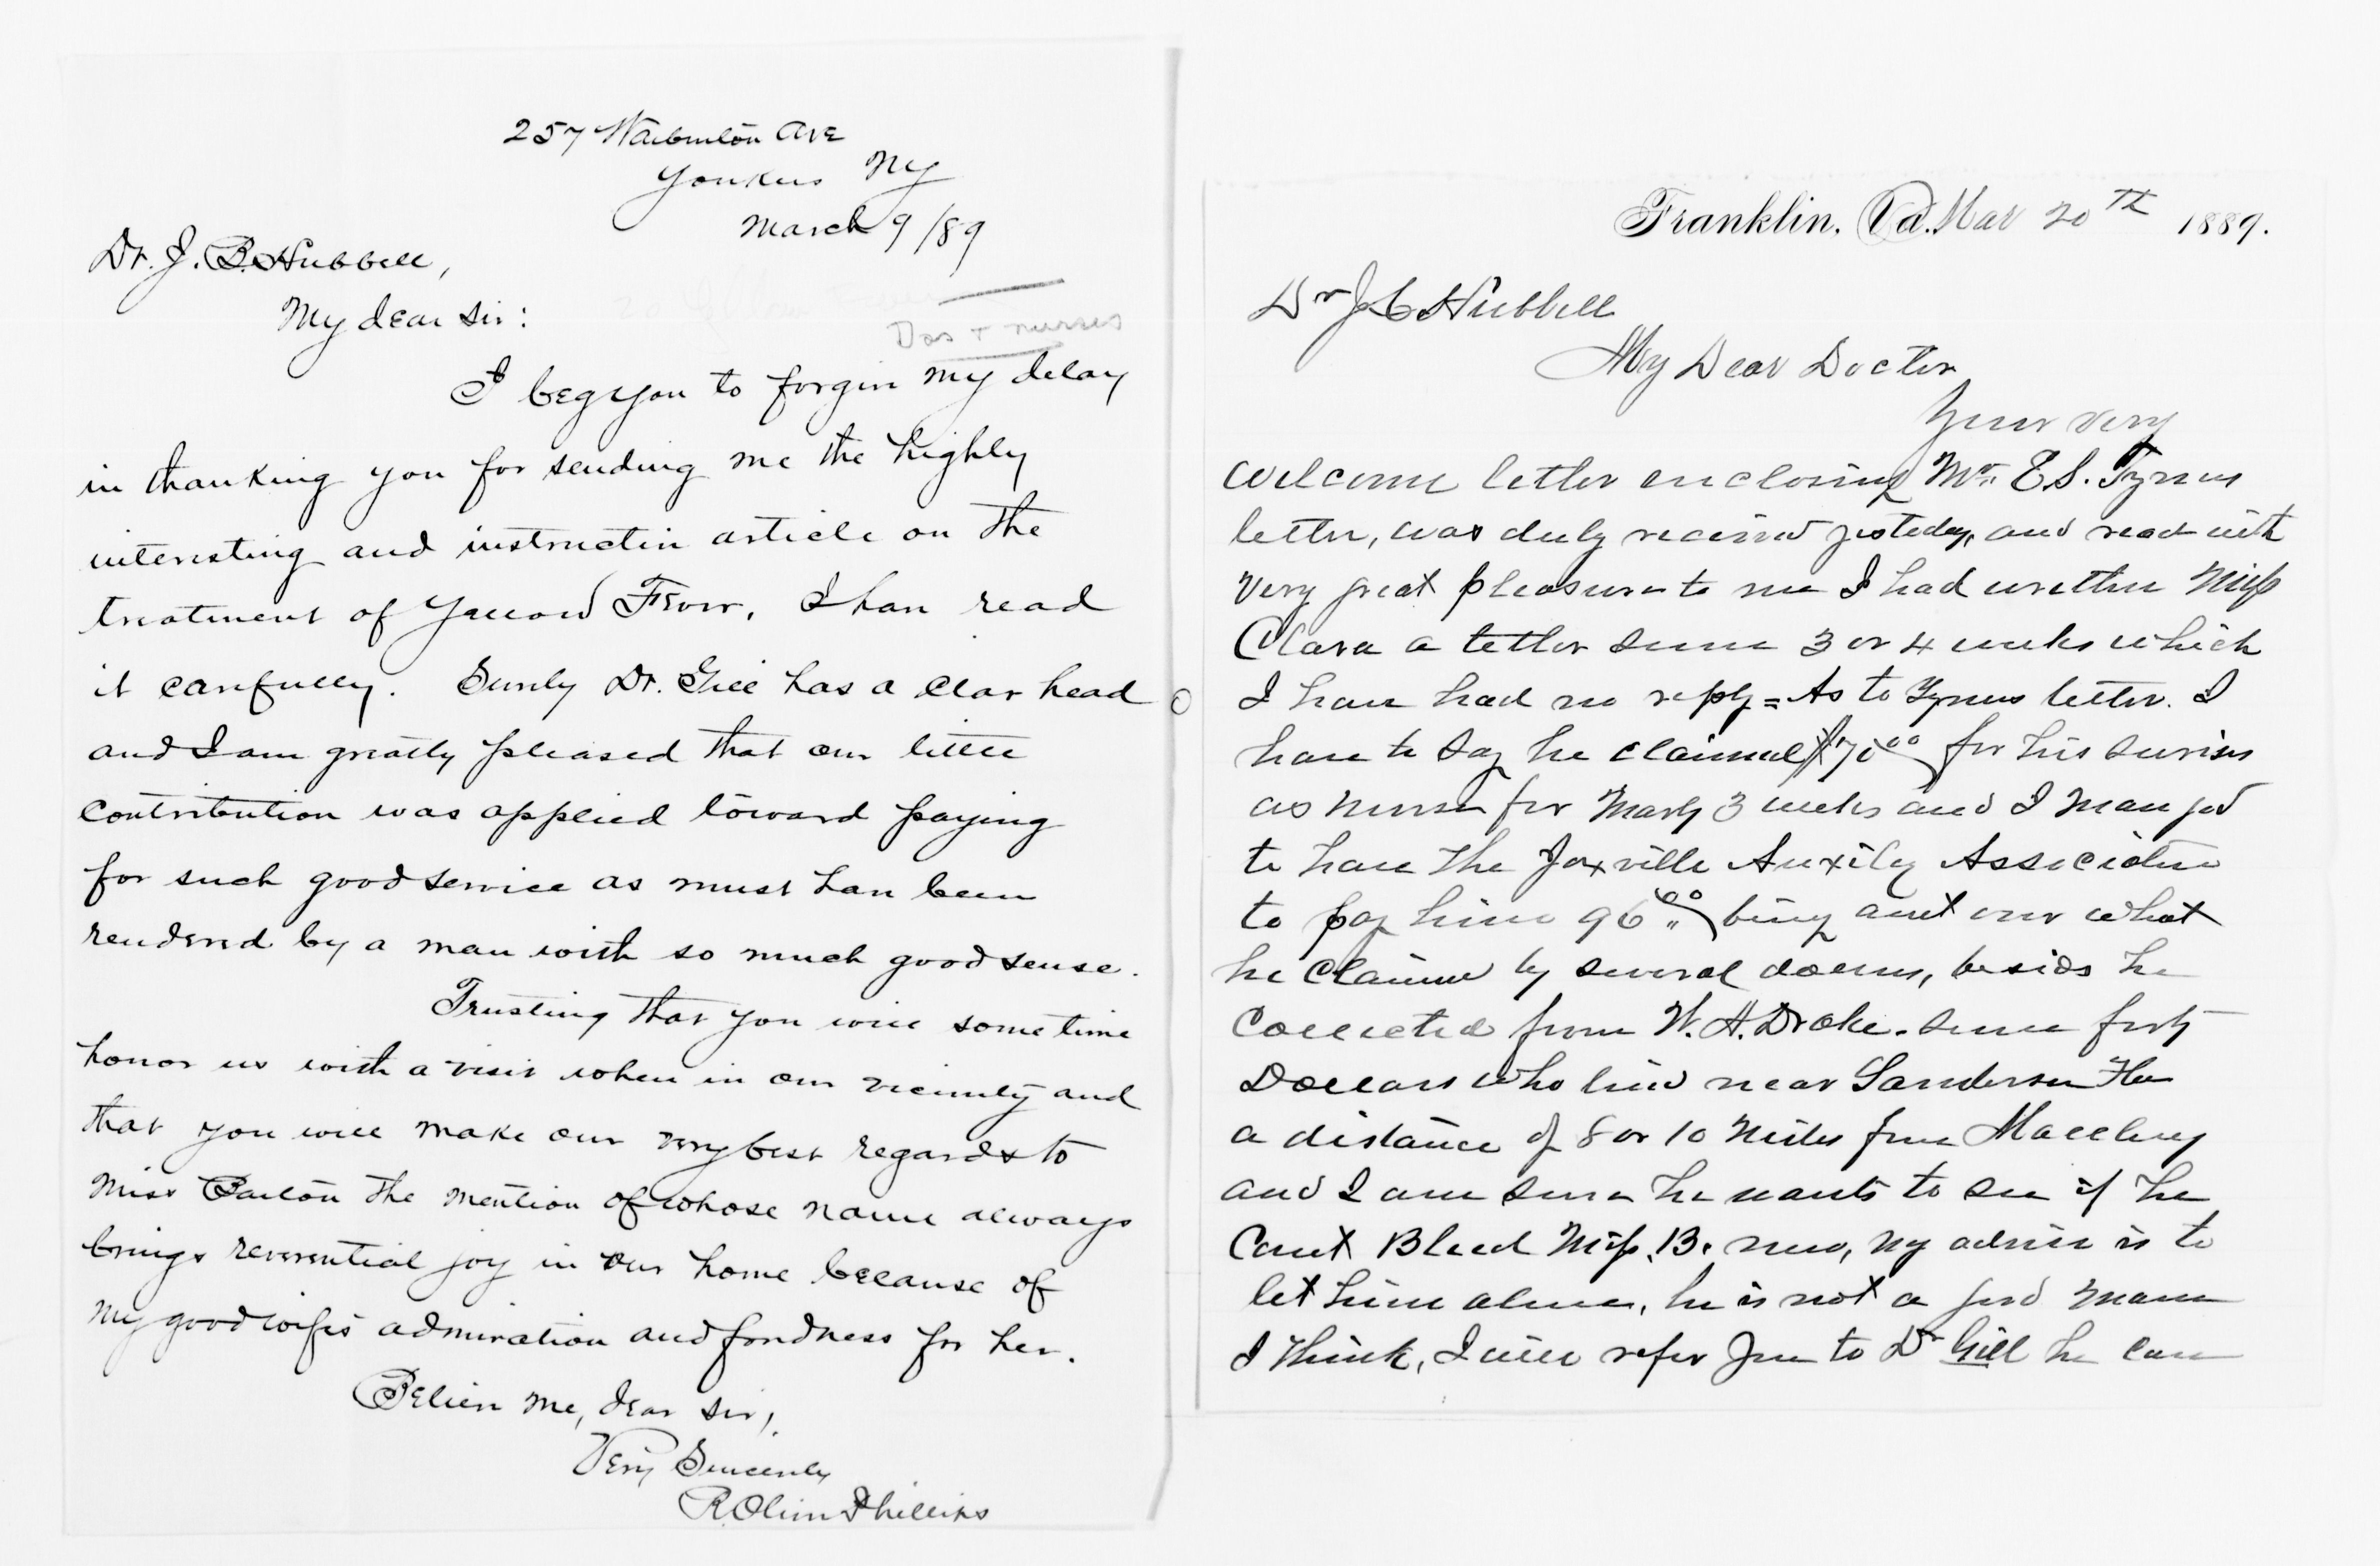 257 Warburton Ave
Yonkers NY
March 9/89
Dr. J. B. Hubbell,
My dear Sir:
Drs + nurses
I beg you to forgive my delay
in thanking you for sending me the highly
interesting and instructive article on the
treatment of Yellow Fever. I have read
it carefully. Surely Dr. Gill has a clear head
and I am greatly pleased that our little
contribution was applied toward paying
for such good service as must have been
rendered by a man with so much good sense.
Trusting that you will some time
honor us with a visit when in our vicinity and
that you will make our very best regards to
Miss Barton the mention of whose name always
brings reverential joy in our home because of
my good wife's admiration and fondness for her.
Believe me, dear sir,
Very Sincerely
R. Olin Phillips
Franklin, Va. Mar 20th 1889.
Dr J B Hubbell
My Dear Doctor
Your very
welcome letter enclosing Mr. E.S. Tyner
letter, was duly received yesteday, and read with
very great pleasure to me I had written Miss
Clara a letter some 3 or 4 weeks which
I have had no reply = As to Tyners letter. I
have to say he claimed $70.00 for his services
as nurse for Mary 3 weeks and I managed
to have the Jaxville Auxily Association
to pay him 96.00 being amt over what
he claimed by several dollars, besids he
collected from W. H. Drake. some forty
Dollars who lived near Sanderson Fla
a distance of 8 or 10 miles from Maccleny
and I am sure he wants to see if he
cant Bleed Miss. B. now, my advice is to
let him alone, he is not a good man
I think, I will refer you to Dr Gill he can